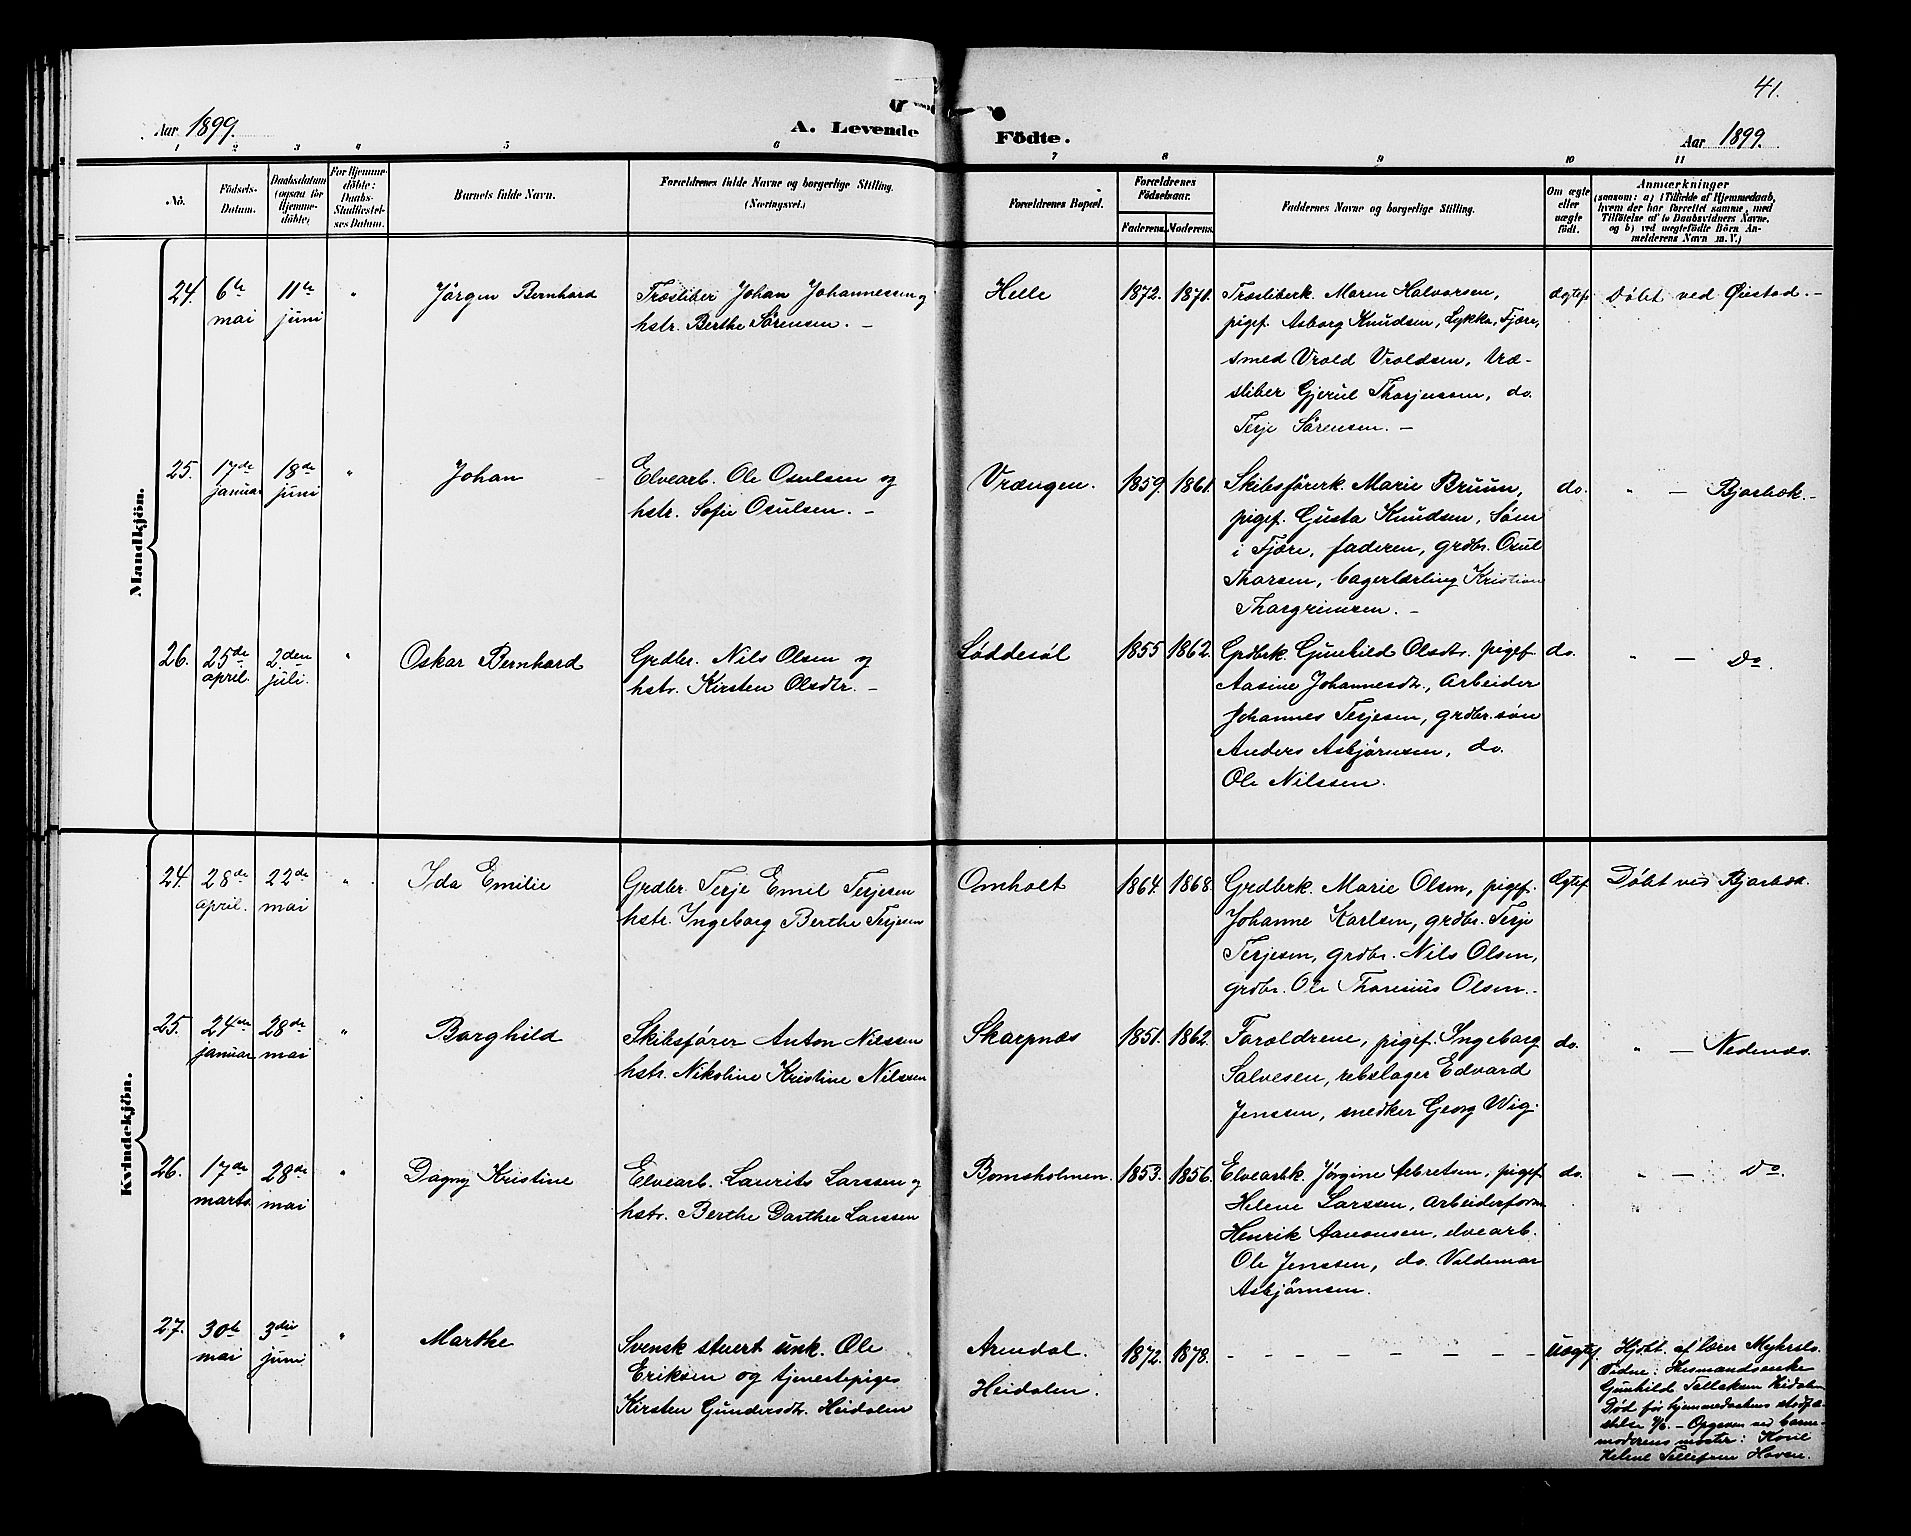 41.
Aar 1899.
A. Levende Födte.
Aar 1899.
1 2 3 4 5 6 7 8 9 10 11
No.
Födsels-
Datum.
Daabsdatum
(ogsaa for
Hjemme-
döbte)
For Hjemme-
döbte:
Daabs-
Stadfæstel-
ses Datum.
Barnets fulde Navn.
Forældrenes fulde Navne og borgerlige Stilling.
(Næringsvei.)
Forældrenes Bopæl.
Forældrenes
Födselsaar.
Faderens. Moderens.
Faddernes Navne og borgerlige Stilling.
Om ægte
eller
uægte
födt.
Anmærkninger
(saasom: a) i Tilfælde af Hjemmedaab,
hvem der har forrettet samme, med
Tilföielse af to Daabsvidners Navne,
og b) ved uægtefödte Börn An-
melderens Navn m. V.)
Mandkjön.
24. 6te mai
11te juni
"
Jørgen Bernhard
Træsliber Johan Johannessen og
hstr. Berthe Sørensen. –
Helle
1872. 1871.
Træsliberk. Maren Halvorsen,
pigef. Asborg Knudsen, Lykke, Fjære,
smed Vrold Vroldsen, træ-
sliber Gjerul Thorjussen, do.
Terje Sørensen. –
Ægtef.
Døbt ved Øiestad. –
25. 17de januar
18de juni
"
Johan
Elvearb. Ole Osulsen og
hstr. Sofie Osulsen. –
Vrængen.
1859. 1861.
Skibsførerk. Marie Bruun,
pigef. Gusta Knudsen, Søm
i Fjære, faderen, grdbr. Osul
Thorsen, bagerlærling Kristian
Thorgrimsen. –
do.
" – Bjorbæk. –
26. 25de april.
2den juli.
"
Oskar Bernhard
Grdbr. Nils Olsen og
hstr. Kirsten Olsdtr. –
Løddesøl
1855 1862.
Grdbrk. Gunhild Olsdtr. pigef.
Aasine Johannesdtr., arbeider
Johannes Terjesen, grdbr.søn
Anders Asbjørnsen, do.
Ole Nilssen.
do.
" – Do.
Kvindekjön.
24. 28de april.
22de mai
"
Ida Emilie
Grdbr. Terje Emil Terjesen
hstr. Ingeborg Berthe Terjesen
Omholt
1864. 1868.
Grdbrk. Marie Olsen, pigef.
Johanne Karlsen, grdbr. Terje
Terjesen, grdbr. Nils Olsen,
grdbr. Ole Thorenius Olsen. –
Ægtef.
Døbt ved Bjorbæk.
25. 24de januar
28de mai
"
Borghild
Skibsfører Anton Nilssen
hstr. Nikoline Kristine Nilssen
Skarpnæs
1851. 1862.
Forældrene, pigef. Ingeborg
Salvesen, rebslager Edvard
Jenssen, snedker Georg Wig.
do.
" – Nedenæs.
26. 17de marts
28de mai
"
Dagny Kristine
Elvearb. Laurits Larssen og
hstr. Berthe Dorthea Larssen
Bomsholmen.
1853. 1856.
Elvearbk. Jørgine Aabretsen, pigef.
Helene Larssen, arbeiderform.
Henrik Aanonsen, elvearb.
Ole Jenssen, do. Valdemar
Asbjørnsen.
do.
" – Do.
27. 30te mai
3die juni
"
Marthe
Svensk stuert unk. Ole
Eriksen og tjenestepige
Kirsten Gundersdtr. Heidalen
Arendal.
Heidalen.
1872. 1878.
– – – – – – – –
Uægtef.
Hjdbt. af lærer Myhrsto.
Vidne: Husmandsenke
Gunhild Tellefsen Heidalen
Død før hjemmedaabens stadfæ-
stelse 4/6. – Opgaven ved barne-
moderens moster: Kone
Helene Tellefsen Haven.